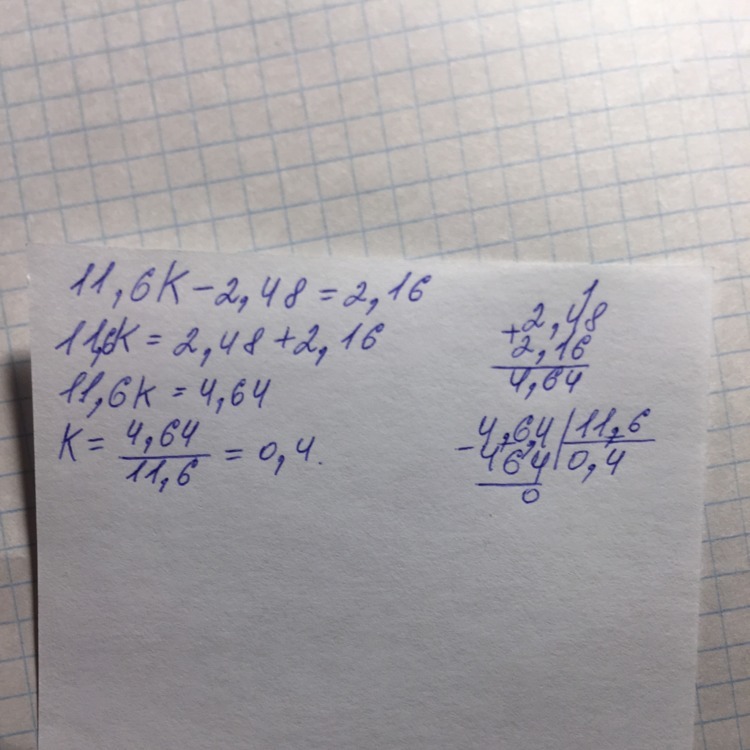 11,6K - 2,48 = 2,16
11,6K = 2,48 + 2,16
11,6K = 4,64
K = 4,64/11,6 = 0,4.
1
+2,48
2,16
4,64
-4,6,4 | 11,6
464 | 0,4
0